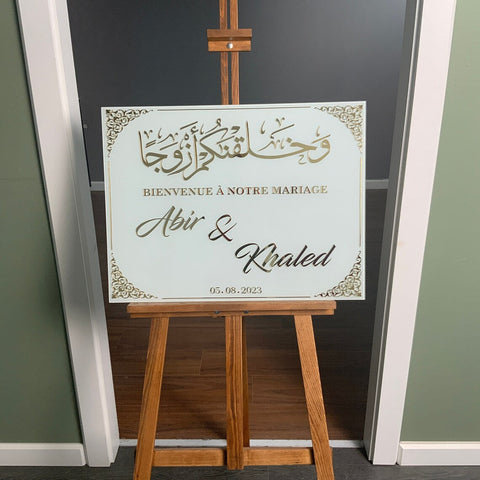 وَخَلَقْنَاكُمْ أَزْوَاجًا
BIENVENUE À NOTRE MARIAGE
Abir &
Khaled
05.08.2023